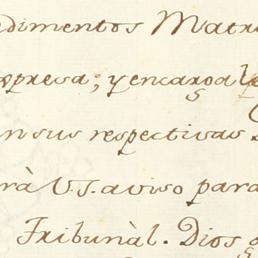 dimentos Matr
xpresa; y encarga l
en sus respectivas
rà V.S. aviso para
Tribunàl. Dios g